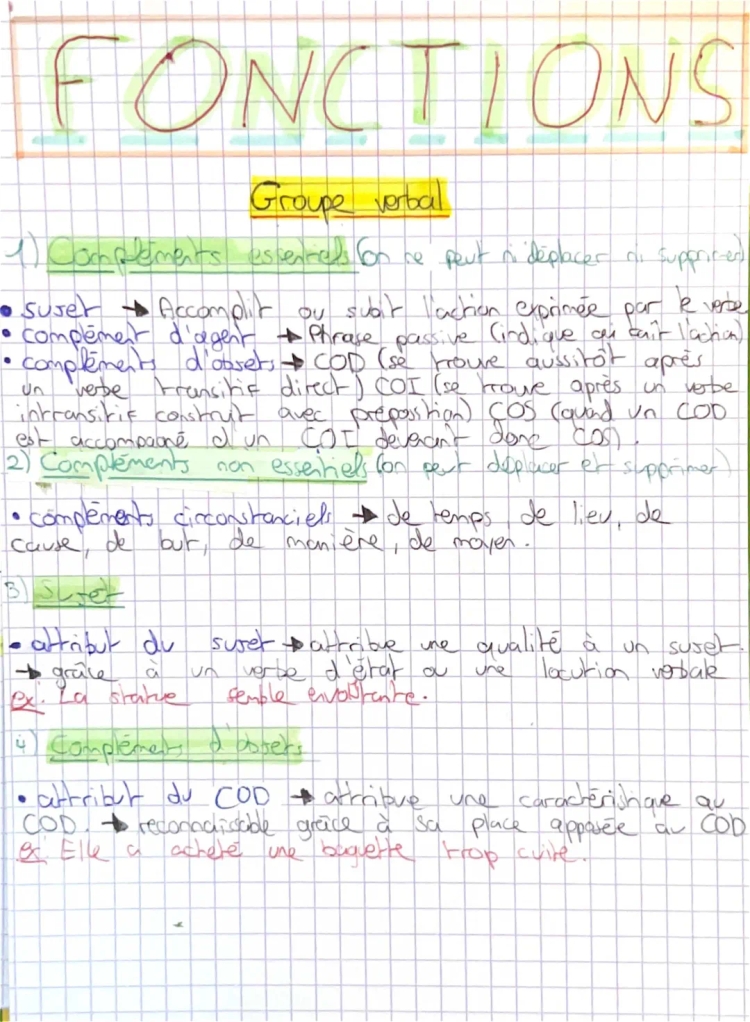 FONCTIONS
Groupe verbal
1) Compléments essentiels (on ne peut ni déplacer ni supprimer)
• sujet → Accomplit ou subit l'action exprimée par le verbe
• complément d'agent → Phrase passive (indique qui fait l'action)
• compléments d'objets → COD (se trouve aussitôt après
un verbe transitif direct) COI (se trouve après un verbe
intransitif construit avec préposition) COS (quand un COD
est accompagné d'un COI devenant donc COS).
2) Compléments non essentiels (on peut déplacer et supprimer)
• compléments circonstanciels → de temps de lieu, de
cause, de but, de manière, de moyen.
3) Sujet
• attribut du sujet → attribue une qualité à un sujet.
→ grâce à un verbe d'état ou une locution verbale
ex: La statue semble envoûtante.
4) Compléments d'objets
• attribut du COD → attribue une caractéristique au
COD. → reconnaissable grâce à sa place apposée au COD
ex: Elle a acheté une baguette trop cuite.